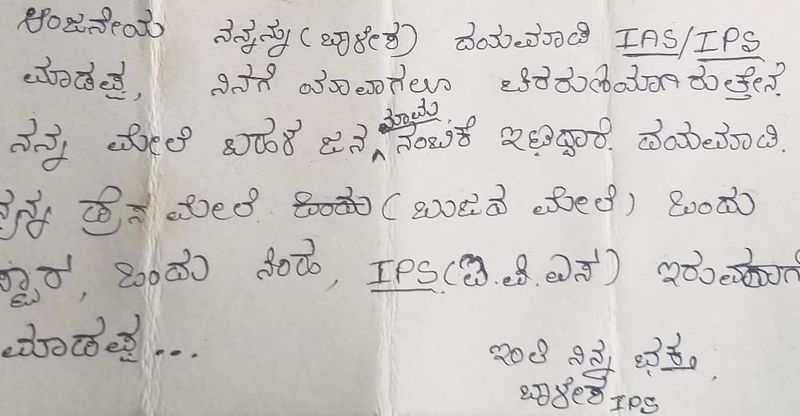 ಆಂಜನೇಯ ನನ್ನನ್ನು (ಬಾಳೇಶ) ದಯಮಾಡಿ IAS/IPS
ಮಾಡಪ್ಪ, ನಿನಗೆ ಯಾವಾಗಲೂ ಚಿರಋಣಿಯಾಗಿರುತ್ತೇನೆ.
ನನ್ನ ಮೇಲೆ ಬಹಳ ಜನ ನಂಬಿಕೆ ಇಟ್ಟಿದ್ದಾರೆ. ದಯಮಾಡಿ.
ನನ್ನ ಡ್ರೆಸ ಮೇಲೆ (ಬುಜದ ಮೇಲೆ) ಒಂದು
ಸ್ಟಾರ, ಒಂದು ಸಿಂಹ, IPS (ಐ.ಪಿ.ಎಸ) ಇರುವಹಾಗೆ
ಮಾಡಪ್ಪ...
ಇಂತಿ ನಿನ್ನ ಭಕ್ತ.
ಬಾಳೇಶ IPS